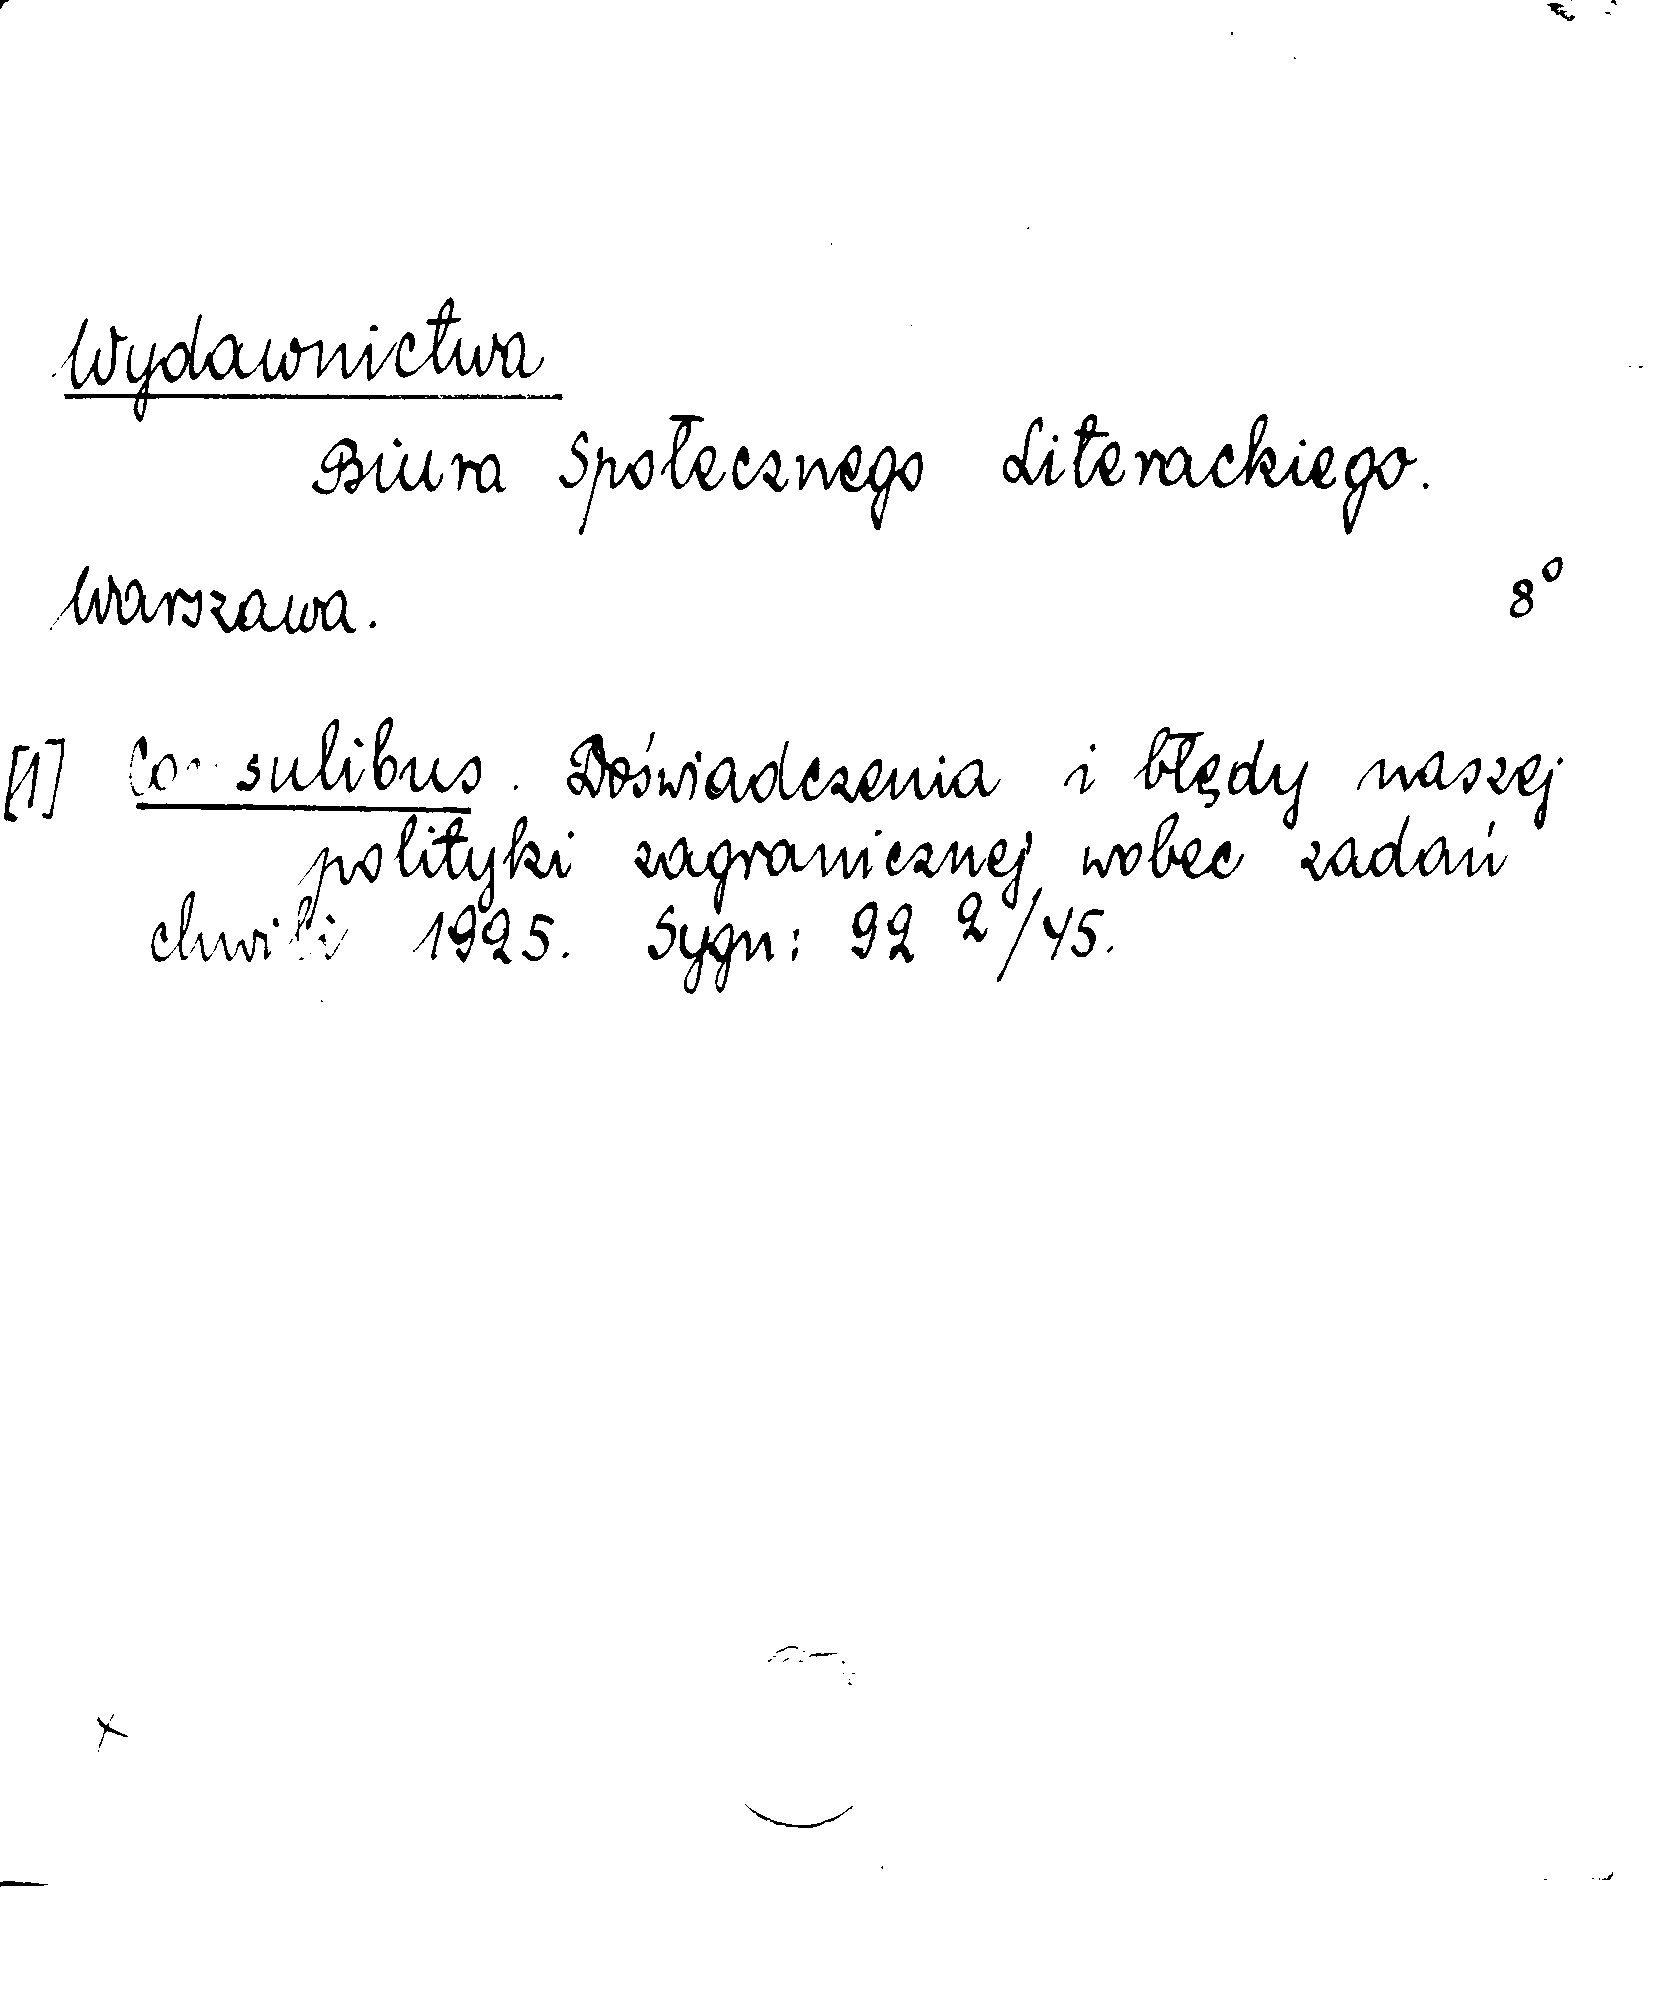 Wydawnictwa
Biura Społecznego Literackiego.
Warszawa. 8°
[1] Consulibus. Doświadczenia i błędy naszej
polityki zagranicznej wobec zadań
chwili 1925. Sygn: 92 2/45.